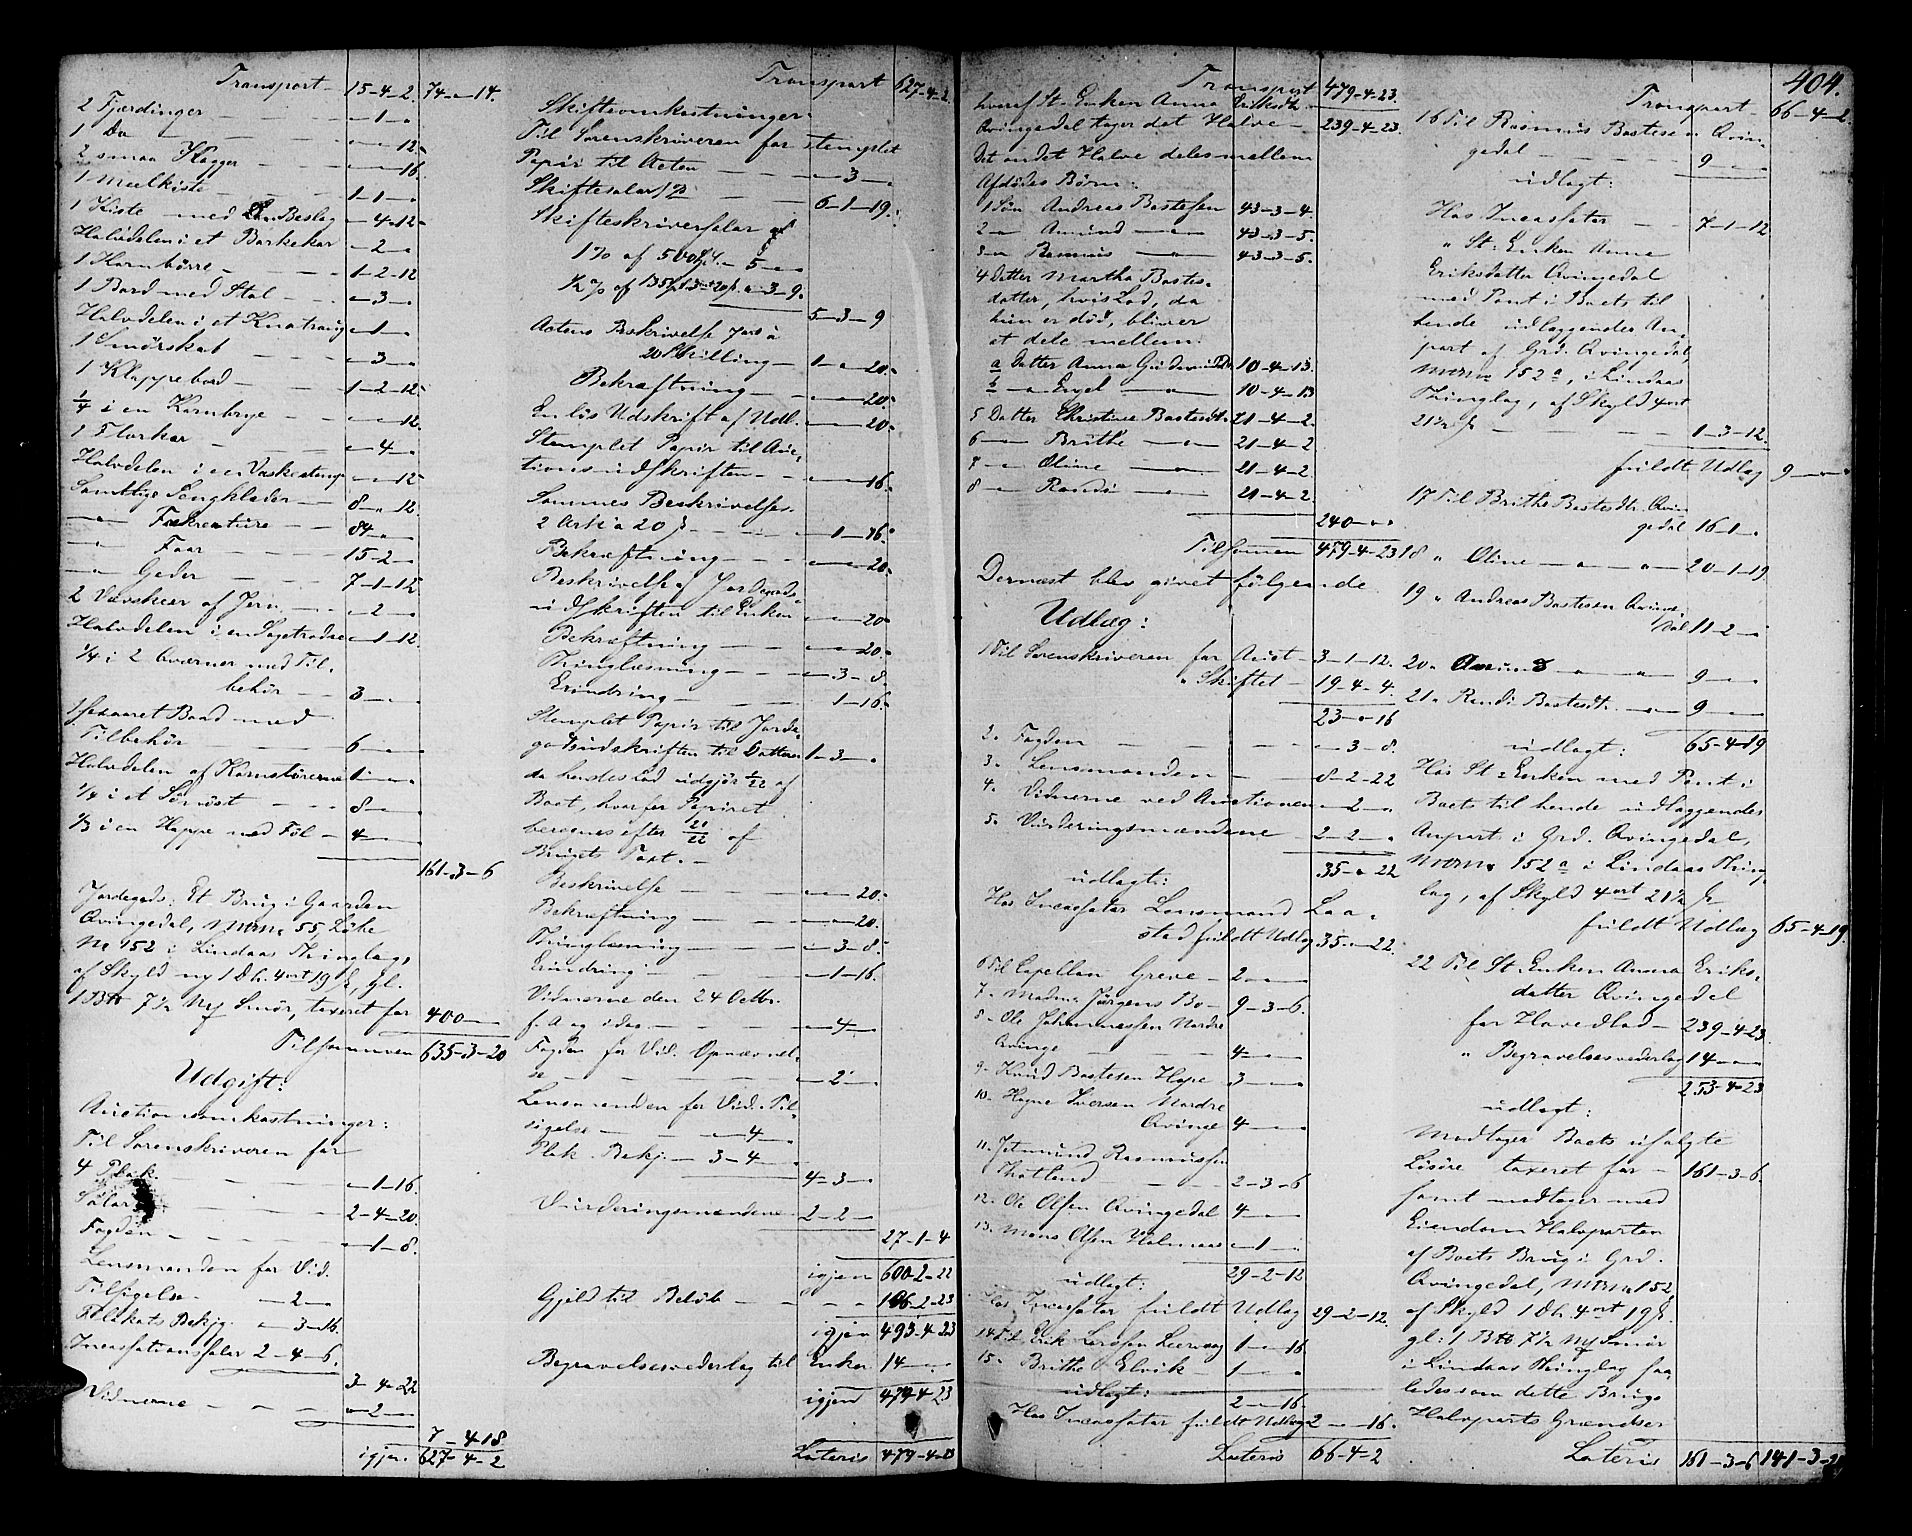 Transport 15-4-2. 74-"-14.
2 Fjerdinger "-1-"
1 Do "-"-12.
2 smaa Kagger "-"-16.
1 Meelkiste 1-1-"
1 Kiste med Beslag "-4-12
Halvdelen i et Barkekar "-2-"
1 Kornbörre 1-2-12
1 Bord med Stol "-3-"
Halvdelen i et Knatraug "-1-"
1 Smörskab "-3-"
1 Klappebord 1-2-12
1/4 i en Kornbrye "-"-12.
1 Florkar "-4-"
Halvdelen i en Vaskestamp "-"-12
Samtlige Sengklæder 8-"-12.
-"- Fækreature 84-"-"
-"- Faar 15-2-"
-"- Geder 7-1-12
2 Vævskeer af Jern "-2-"
Halvdelen i en Sagetrodse "-1-12.
1/4 i 2 Qværner med Til-
behör 3-"-"
1 Baad med
Tilbehör 6-"-"
Halvdelen af Kornstörerne 1-"-"
1/4 i et 8-"-"
1/3 i en Hoppe med Föl 4-"-"
161-3-6
Jordegods: Et Brug i Gaarden
Qvingedal, Matrn. 55, Löbe
No 152 i Lindaas Thinglag,
af Skyld ny 1 Dlr. 4 ort 19 ß, gl.
1 7 1/2 Smör, taxeret for 400-"-"
Tilsammen 635-3-20
Udgift:
Auctionsomkostninger:
Til Sorenskriveren for
4 Plak. "-1-16.
Salar 2-4-20.
Fogden "-1-8.
Lensmanden for Vid.
Tilsigelse "-2-"
Plakats Bekj. "-3-16.
Incassationssalar 2-4-6.
3-4-22
Vidnerne "-2-"
7-4-18
igjen 627-4-2
Transport 627-4-2
Skifteomkostninger:
Til Sorenskriveren for stemplet
Papir til Acten "-3-"
Skiftesalar 1 % 6-1-19.
Skifteskriversalar af
1 % af 500 5-"-"
1/2 % af 135 "-3-9.
5-3-9
Actens Beskrivelse 7 ark à
20 Skilling 1-"-20.
Bekræftning "-"-20.
En lös Udskrift af Udl. "-"-20.
Stemplet Papir til Auc-
tionsudskriften "-"-16.
Sammes Beskrivelse
2 Ark à 20 ß "-1-16.
Bekræftning "-"-20.
Beskrivelse af Jordegods-
udskriften til Enken "-"-20.
Bekræftning "-"-20.
Thinglæsning "-3-8.
Erindring 1-16.
Stemplet Papir til Jorde-
godsudskriften til Dattren 1-3-"
da hendes Lod udgjör 1/22 af
Boet, hvorfor Papiret
beregnes efter 21/22 af
Brugets Taxt.
Beskrivelse "-"-20.
Bekræftning "-"-20.
Thinglæsning "-3-8.
Erindring "-1-16.
Vidnerne den 24 Octbr.
f. A og idag "-4-"
Fogden for Vid. Opnævnel-
se "-2-"
Lensmanden for Vid. Til-
sigelse "-4-"
Plak. Bekj. 3-4-"
4-3-"
Vurderingsmændene 2-2-"
27-1-4
igjen 600-2-22
Gjeld til Belöb 106-2-23
igjen 493-4-23
Begravelsesvederlag til Enken 14-"-"
igjen 479-4-23
Lateris 479-4-23
404.
Transport 479-4-23.
hvoraf St. Enken Anna Eriksdtr.
Qvingedal tager det Halve 239-4-23.
Det andet Halve deles mellem
Afdödes Börn:
1 Sön Andreas Bastesen 43-3-4.
2 -"- Amund -"- 43-3-5.
3 -"- Rasmus -"- 43-3-5.
4 Datter Martha Bastes-
datter, hvis Lod, da
hun er död, bliver
at dele mellem:
a Datter Anna 10-4-13.
b -"- Engel -"- 10-4-13
5 Datter Christine Bastesdtr. 21-4-2.
6 -"- Brithe -"- 21-4-2
7 -"- Oline -"- 21-4-2
8 -"- Randi -"- 21-4-2.
240-"-"
Tilsammen 479-4-23
Dernæst blev givet fölgende
Udlæg:
1 Til Sorenskriveren for Auct. 3-1-12.
" Skiftet 19-4-4.
23-"-16
2. Fogden "-3-8.
3. Lensmanden 8-2-22
4. Vidnerne ved Auctionen "-2-"
5. Vurderingsmændene 2-2-"
35-"-22
udlagt:
Hos Incassator Lensmand Laa-
stad fuldt Udlæg 35-"-22.
6 Til Capellan Greve 2-"-"
7. Madme Jörgens Bo 9-3-6.
8. Ole Johannessen Nordre
Qvinge 4-"-"
9. Knud Bastesen Hope 3-"-"
10. Hagne Iversen Nordre
Qvinge 4-"-"
11. Rasmussen
2-3-6
12. Ole Olsen Qvingedal 4-"-"
13. Mons Olsen "-1-"
29-2-12
udlagt:
Hos Incassator fuldt Udlæg 29-2-12.
14 Til Erik 1-"-16
15. Brithe Elvik 1-"-"
udlagt: 2-"-16.
Hos Incassator fuldt Udlæg 2-"-16.
Lateris 66-4-2
Transport 66-4-2.
16 Til Rasmus Bastesen Qvin-
gedal 9-"-"
udlagt:
Hos Incassator 7-1-12.
" St. Enken Anna
Eriksdatter Qvingedal
med Pant i Boets til
hende udlæggendes An-
part af Grd. Qvingedal,
Matrn. 152 a, i Lindaas
Thinglag, af Skyld 4 ort
21 1/2 ß 1-3-12.
fuldt Udlæg 9-"-"
17 Til Brithe Bastesdtr. Qvin-
gedal 16-1-"
18 " Oline -"- 20-1-19
19 " Andreas Bastesen Qvinge-
dal 11-2-"
20 " Amund -"- 9-"-"
21 " Randi Bastesdtr. -"- 9-"-"
udlagt: 65-4-19
Hos St. Enken med Pant i
Boets til hende udlæggendes
Anpart i Grd. Qvingedal,
Matrn. 152 a i Lindaas Thing-
lag, af Skyld 4 ort 21 1/2 ß
fuldt Udlæg 65-4-19.
22 Til St. Enken Anna Eriks-
datter Qvingedal
for Hovedlod 239-4-23.
" Begravelsesvederlag 14-"-"
253-4-23
udlagt:
Modtager Boets usolgte
Lösöre taxeret for 161-3-6.
samt modtager med
Eiendom Halvparten
af Boets Brug i Grd.
Qvingedal, Matrn. 152,
af Skyld 1 Dlr. 4 ort 19 ß.
gl. 1 7 1/2 Smör
i Lindaas Thinglag saa-
ledes som dette Brugs
Halvparts Grændser
Lateris 161-3-6 141-3-